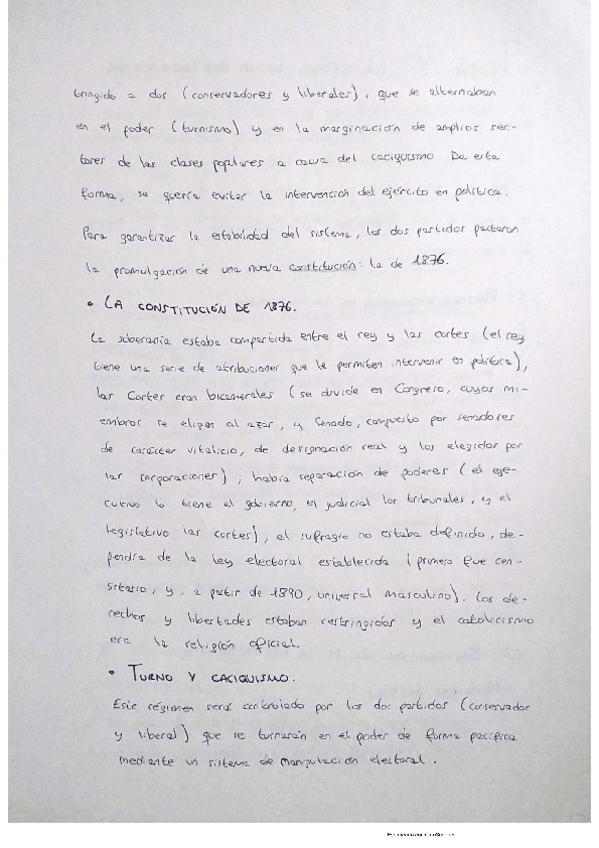 tringido a dos (conservadores y liberales), que se alternaban
en el poder (turnismo) y en la marginación de amplios sec-
tores de las clases populares a causa del caciquismo De esta
forma, se quería evitar la intervención del ejército en política.
Para garantizar la estabilidad del sistema, los dos partidos pactaron
la promulgación de una nueva constitución: la de 1876.
• LA CONSTITUCIÓN DE 1876.
La soberanía estaba compartida entre el rey y las cortes (el rey
tiene una serie de atribuciones que le permiten intervenir en política),
las Cortes eran bicamerales (se divide en Congreso, cuyos mi-
embros se eligen al azar, y Senado, compuesto por senadores
de carácter vitalicio, de designación real y los elegidos por
las corporaciones), había separación de poderes (el eje-
cutivo lo tiene el gobierno, el judicial los tribunales, y el
legislativo las cortes), el sufragio no estaba definido, de-
pendía de la ley electoral establecida (primero fue cen-
sitario, y, a partir de 1890, universal masculino). Los de-
rechos y libertades estaban restringidos y el catolicismo
era la religión oficial.
• TURNO Y CACIQUISMO.
Este régimen será controlado por los dos partidos (conservador
y liberal) que se turnarán en el poder de forma pacífica
mediante un sistema de manipulación electoral.